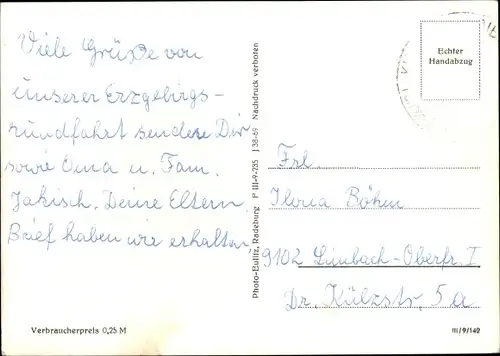 Viele Grüße von
unserer Erzgebirgs-
rundfahrt senden Dir
sowie Oma u. Fam.
Jakisch. Deine Eltern.
Brief haben wir erhalten,
Verbraucherpreis 0,25 M
Photo-Eulitz, Radeburg P III-9-235 J 38-69 Nachdruck verboten
Echter
Handabzug
Frl
Ilona Böhm
9102 Limbach-Oberfr. I
Dr. Külzstr. 5a
III/9/142